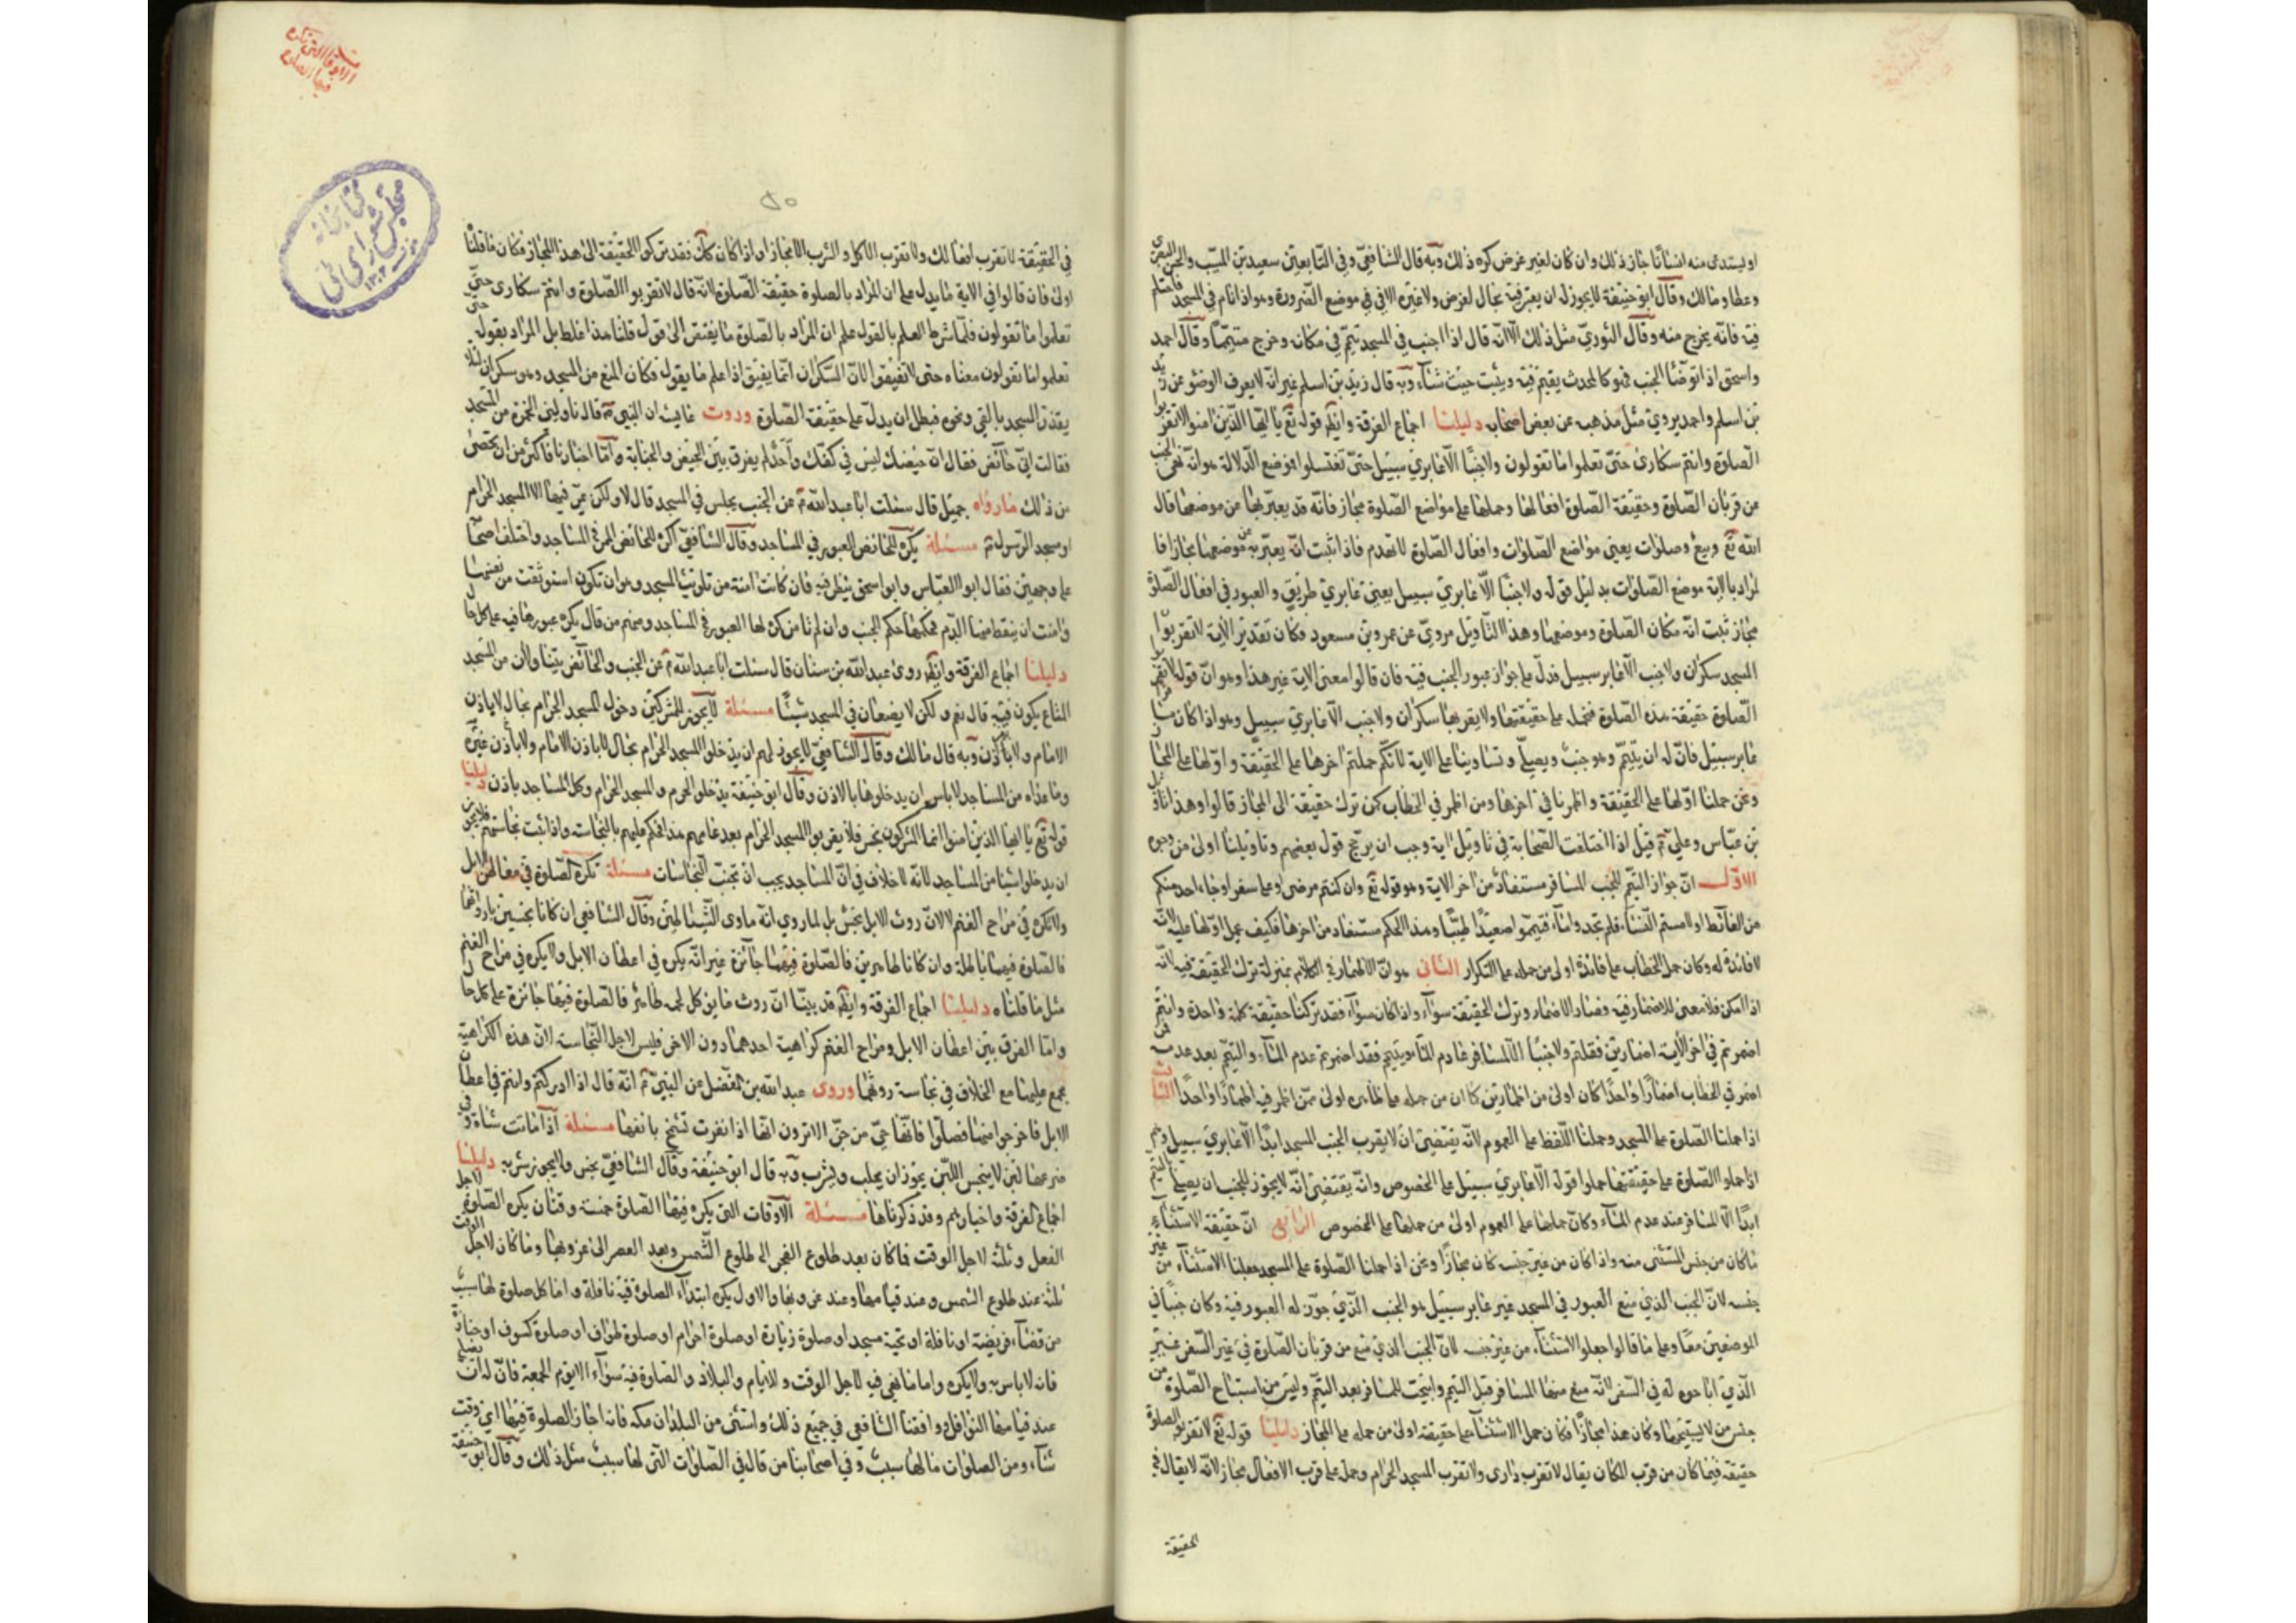 او ليستدعى منه انسانا جاز ذلك وان كان لغير غرض كره ذلك وبه قال الشافعي وفي التابعين سعيد بن المسيب والحسن البصرى
وعطا ومالك وقال ابو حنيفة لا يجوز له ان يعبر فيه بحال لغرض ولا غيره الا في موضع الضرورة وهو اذا نام في المسجد فاحتلم
فيه فانه يخرج منه وقال الثوري مثل ذلك الا انه قال اذا اجنب في المسجد تيمم في مكانه وخرج متيمما وقال احمد
واسحق اذا توضأ الجنب فهو كالمحدث يقيم فيه ويثبت حيث شاء وبه قال زيد بن اسلم غير انه لا يعرف الوضوء عن زيد
بن اسلم واحمد يروي مثل مذهبه عن بعض اصحابه دليلنا اجماع الفرقة وايضا قوله تع يا ايها الذين امنوا لا تقربوا
الصلوة وانتم سكارى حتى تعلموا ما تقولون ولا جنبا الا عابري سبيل حتى تغتسلوا فوضع الدلالة هو انه نهى الجنب
من قربان الصلوة وحقيقة الصلوة افعالها وحملها على مواضع الصلوة مجاز فانه قد يعبر بها عن موضعها قال
الله تع وبيع وصلوات يعنى مواضع الصلوات وافعال الصلوة لا تهدم فاذا ثبت انه يعبر به عن موضعها مجازا فا
لمراد بالاية موضع الصلوات بدليل قوله ولا جنبا الا عابري سبيل يعنى عابري طريق والعبور في افعال الصلوة
مجاز ثبت انه مكان الصلوة وموضعها وهذا التاويل مروي عن عمرو بن مسعود فكان تقدير الاية لا تقربوا
المسجد سكران ولا جنب الا عابر سبيل فدل على جواز عبور الجنب فيه فان قالوا معنى الاية غير هذا وهو ان قوله لا تقربوا
الصلوة حقيقة هذه الصلوة فنحمله على حقيقتها ولا يقربها سكران ولا جنب الا عابري سبيل وهو اذا كان
عابر سبيل فان له ان يتيمم وهو جنب ويصلي وتساوينا على الاية لانكم حملتم اخرها على الحقيقة واولها على المجاز
ونحن حملنا اولها على الحقيقة واظهرنا في اخرها ومن اظهر في الخطاب كمن ترك حقيقة الى المجاز قالوا وهذا تاويل
بن عباس وعلي قيل اذا اختلفت الصحابة في تاويل اية وجب ان يرجح قول بعضهم وتاويلنا اولى من وجوه
الاول ان جواز التيمم للجنب المسافر مستفاد من اخر الاية وهو قوله تع وان كنتم مرضى او على سفر او جاء احد منكم
من الغائط او لامستم النساء فلم تجدوا ماء فتيمموا صعيدا طيبا وهذا الحكم مستفاد من اخرها فكيف يحمل اولها عليه لانه
لا فائدة له وكان حمل الخطاب على فائدة اولى من حمله على التكرار الثاني هو ان الاظهار في الكلام بمنزلة ترك الحقيقة فيه لانه
اذا امكن فلا معنى للاضمار فيه وصار الاضمار وترك الحقيقة سواء واذا كان سواء فقد تركنا حقيقة كلمة واحدة وانتم
اضمرتم في اخر الاية اضمارين فقلتم ولا جنبا الا المسافر عادم الماء ويتيمم فقد اضمرتم عدم الماء والتيمم بعد عدمه فمن
اضمر في الخطاب اضمارا واحدا كان اولى من اظمارين كما ان من حمله على ظاهره اولى ممن اظهر فيه اظهارا واحدا الثالث
اذا حملنا الصلوة على المسجد وحملنا اللفظ على العموم لانه يقتضي ان لا يقرب الجنب المسجد ابدا الا عابري سبيل وهم
اذا حملوا الصلوة على حقيقتها حملوا قوله الا عابري سبيل على الخصوص وانه يقتضي انه لا يجوز للجنب ان يصلي
ابدا الا المسافر عند عدم الماء وكان حملها على العموم اولى من حملها على الخصوص الرابع ان حقيقة الاستثناء
ما كان من جنس المستثنى منه واذا كان من غير جنسه كان مجازا ونحن اذا حملنا الصلوة على المسجد جعلنا الاستثناء من
جنسه لان الجنب الذي منع العبور في المسجد غير عابر سبيل هو الجنب الذي جوز له العبور فيه وكان جنبا في
الموضعين معا وعلى ما قالوا جعلوا الاستثناء من غير جنسه لان الجنب الذي منع من قربان الصلوة في غير السفر غير
الذي اباحوه له في السفر لانه منع منها المسافر قبل التيمم وابيحت للمسافر بعد التيمم وليس من استباح الصلوة من
جنس من لا يستبيحها وكان هذا مجازا فكان حمل الاستثناء على حقيقة اولى من حمله على المجاز دليلنا قوله تع لا تقربوا الصلوة
حقيقة فيما كان من قرب المكان يقال لا تقرب دارى ولا تقرب المسجد الحرام وحمله على قرب الافعال مجاز لانه لا يقال في
الحقيقة
مسئلة الاوقات التي تكره فيها الصلوة
كتابخانه
مجلس شوراى ملى
٥٠
في الحقيقة لا تقرب افعالك ولا تقرب الاكل والشرب الا مجازا واذا كان كك فقد تركوا الحقيقة الى هذا المجاز فكان ما قلنا
اولى فان قالوا في الاية ما يدل على ان المراد بالصلوة حقيقة الصلوة لانه قال لا تقربوا الصلوة وانتم سكارى حتى
تعلموا ما تقولون فلما شرط العلم بالقول علم ان المراد بالصلوة ما يفتقر الى قول قلنا هذا غلط بل المراد بقوله حتى
تعلموا ما تقولون معناه حتى تفيقوا لان السكران انما يفيق اذا علم ما يقول فكان المنع من المسجد وهو سكران لئلا
يقذر المسجد بالقئ ونحوه فبطل ان يدل على حقيقة الصلوة وروت عايشه ان النبي قال ناوليني الخمرة من المسجد
فقالت اني حائض فقال ان حيضك ليس في كفك واحد لم يفرق بين الحيض والجنابة واما اخبارنا فاكثر من ان تحصى
من ذلك ما رواه جميل قال سئلت ابا عبد الله عن الجنب يجلس في المسجد قال لا ولكن يمر فيها الا المسجد الحرام
ومسجد الرسول مسئلة يكره للحائض العبور في المساجد وقال الشافعي اكره للحائض الممر في المساجد واختلف اصحابه
على وجهين فقال ابو العباس وابو اسحق ينظر فيه فان كانت امنة من تلويث المسجد وهو ان تكون استوثقت من نفسها
وامنت ان يسقط منها الدم فحكمها حكم الجنب وان لم تامن كره لها العبور في المساجد ومنهم من قال يكره عبورها فيه على كل حال
دليلنا اجماع الفرقة وايضا روى عبد الله بن سنان قال سئلت ابا عبد الله عن الجنب والحائض يتناولان من المسجد
المتاع يكون فيه قال نعم ولكن لا يضعان في المسجد شيئا مسئلة لا يجوز للمشركين دخول المسجد الحرام بحال لا باذن
الامام ولا باذن وبه قال مالك وقال الشافعي لا يجوز لهم ان يدخلوا المسجد الحرام بحال لا باذن الامام ولا باذن غيره
وما عداه من المساجد لا باس ان يدخلوها بالاذن وقال ابو حنيفة يدخلوا الحرم والمسجد الحرام وكل المساجد باذن دليلنا
قوله تع يا ايها الذين امنوا انما المشركون نجس فلا يقربوا المسجد الحرام بعد عامهم هذا فحكم عليهم بالنجاسة واذا ثبت نجاستهم فلا يجوز
ان يدخلوا شيئا من المساجد لانه لا خلاف في ان المساجد يجب ان تجنب النجاسات مسئلة تكره الصلوة في معاطن الابل
ولا تكره في مراح الغنم لا لان روث الابل نجس بل لما روي انه ماوى الشياطين وقال الشافعي ان كانا نجسين باروائهما
فالصلوة فيهما باطلة وان كانا طاهرين فالصلوة فيهما جائزة غير انه يكره في اعطان الابل ولا يكره في مراح الغنم
مثل ما قلناه دليلنا اجماع الفرقة وايضا قد بينا ان روث ما يؤكل لحمه طاهر فالصلوة فيها جائزة على كل حال
واما الفرق بين اعطان الابل ومراح الغنم كراهية احدهما دون الاخر فليس لاجل النجاسة لان هذه الكراهية
مجمع عليها مع الخلاف في نجاسة روثها وروى عبد الله بن المفضل عن النبي انه قال اذا ادركتم وانتم في اعطان
الابل فاخرجوا منها فصلوا فانها جن من جن الا ترون انها اذا نفرت تشمخ بانفها مسئلة اذا ماتت شاة وفي
ضرعها لبن لا ينجس اللبن يجوز ان يحلب ويشرب وبه قال ابو حنيفة وقال الشافعي نجس ولا يجوز شربه دليلنا
اجماع الفرقة واخبارهم وقد ذكرناها مسئلة الاوقات التي يكره فيها الصلوة خمسة وقتان يكره الصلوة لاجل
الفعل وثلثة لاجل الوقت فما كان بعد طلوع الفجر الى طلوع الشمس وبعد العصر الى غروبها وما كان لاجل الوقت
ثلثة عند طلوع الشمس وعند قيامها وعند غروبها والاول يكره ابتداء الصلوة فيه نافلة واما كل صلوة لها سبب
من قضاء فريضة او نافلة او تحية مسجد او صلوة زيارة او صلوة احرام او صلوة طواف او صلوة كسوف او جنازة
فانه لا باس به ولا يكره واما ما نهى فيه لاجل الوقت والايام والبلاد والصلوة فيه سواء الا يوم الجمعة فان له ان يصلي
عند قيامها النوافل ووافقنا الشافعي في جميع ذلك واستثنى من البلدان مكة فانه اجاز الصلوة فيها اي وقت
شاء ومن الصلوات ما لها سبب وفي اصحابنا من قال في الصلوات التي لها سبب مثل ذلك وقال ابو حنيفة